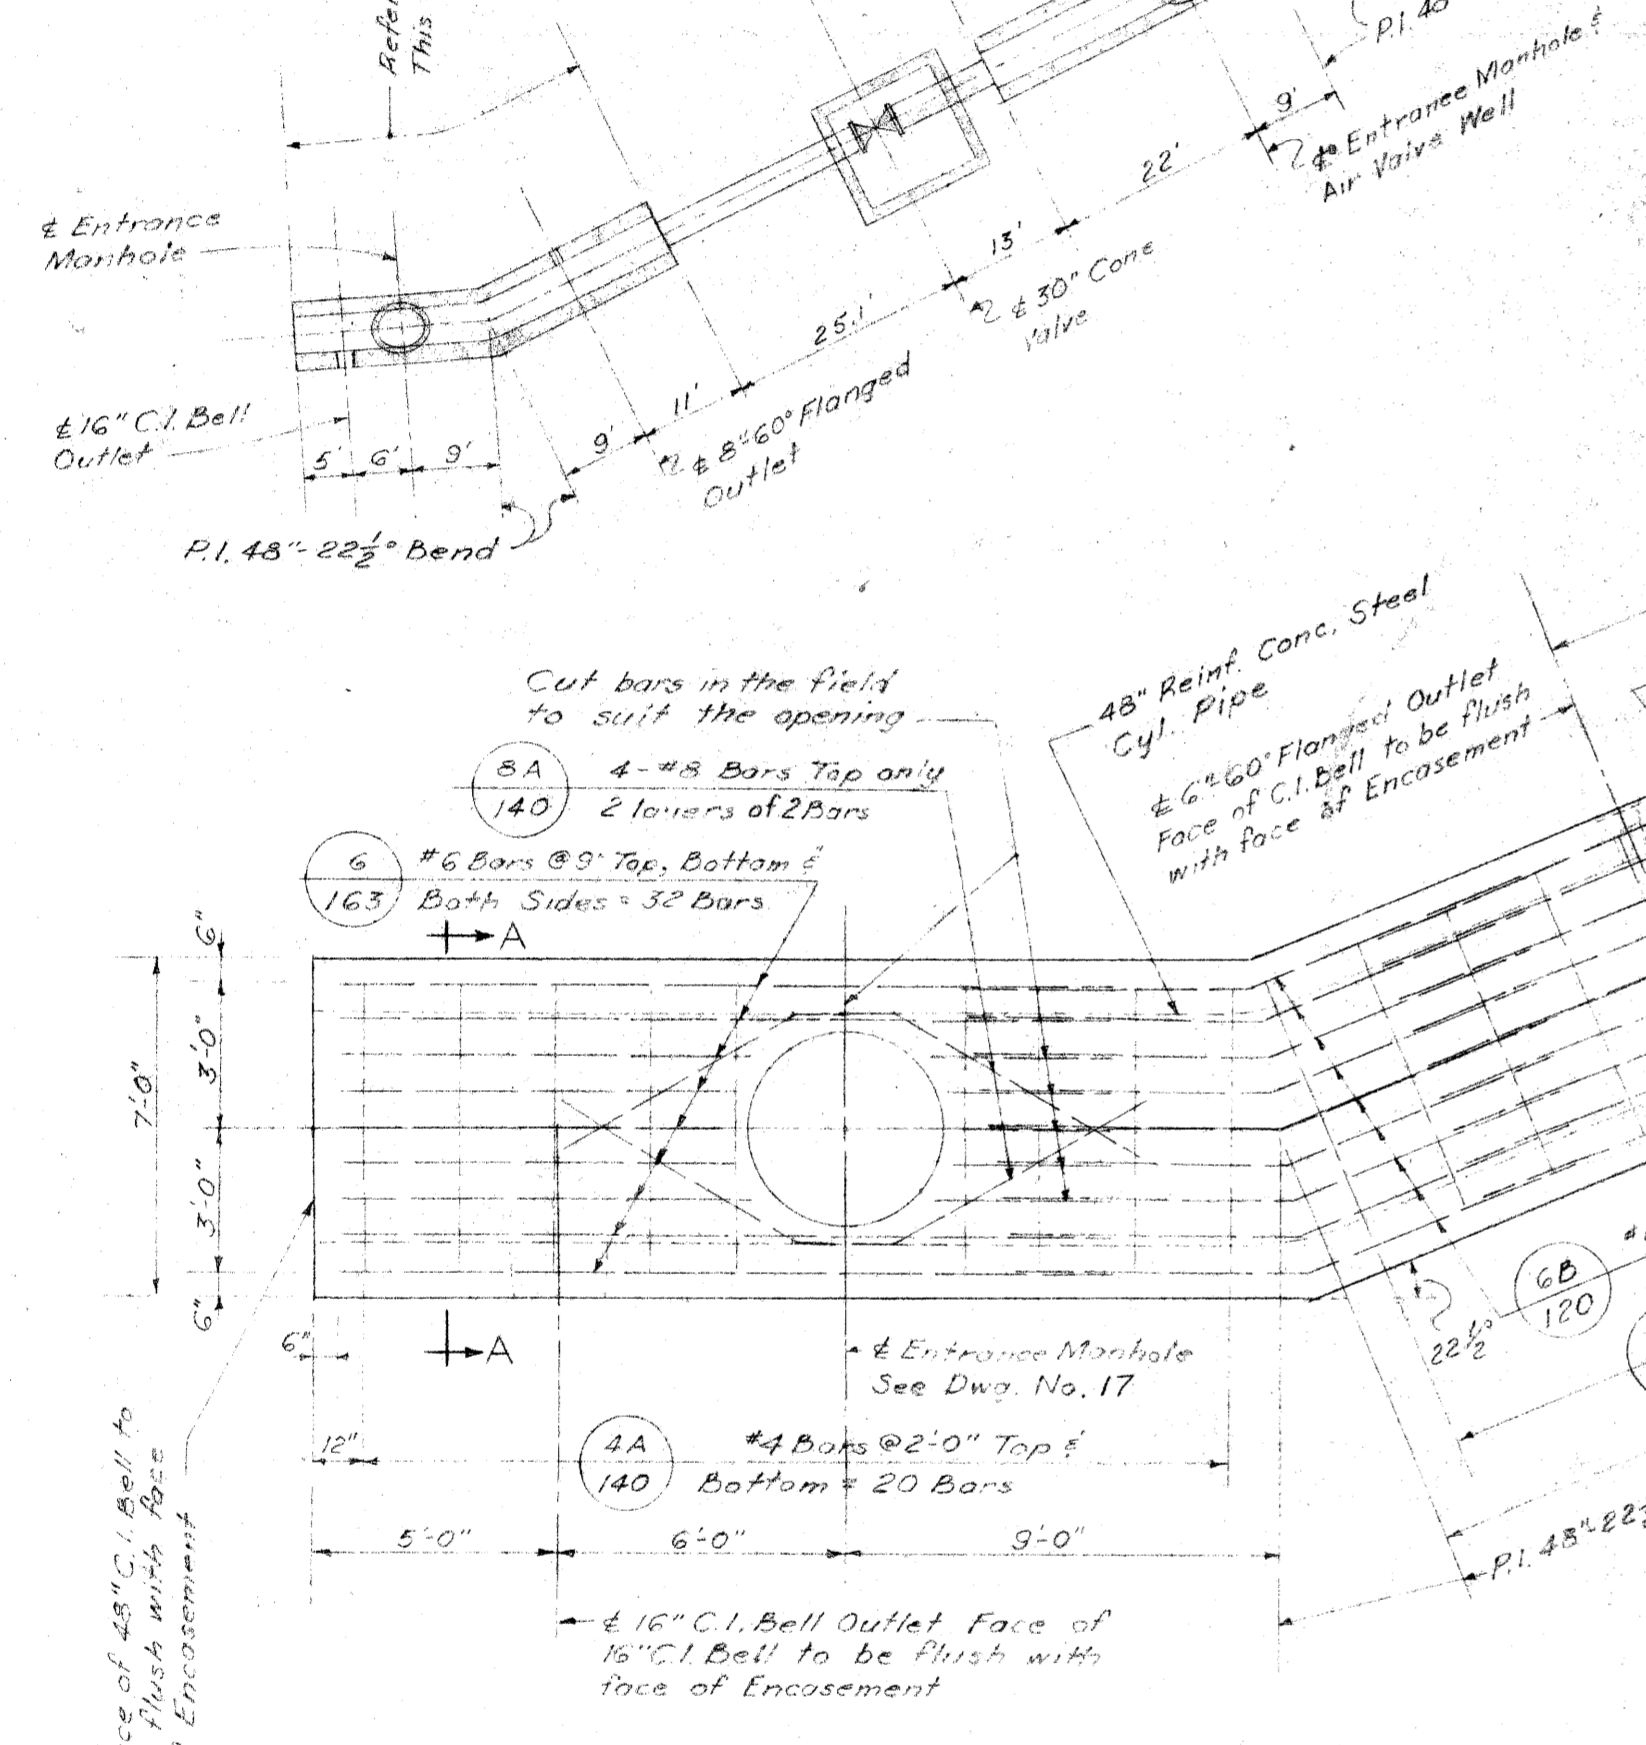 This
P.I. 48
9'
℄ Entrance Manhole &
Air Valve Well
22'
13'
℄ 30" Cone
Valve
25.1'
℄ Entrance
Manhole
11'
9'
℄ 8"-60° Flanged
Outlet
℄ 16" C.I. Bell
Outlet
5'
6'
9'
P.I. 48"-22½° Bend
Cut bars in the field
to suit the opening
8A
140
4-#8 Bars Top only
2 layers of 2 Bars
6
163
#6 Bars @ 9" Top, Bottom &
Both Sides = 32 Bars
48" Reinf. Conc. Steel
Cyl. Pipe
℄ 6"-60° Flanged Outlet
Face of C.I. Bell to be flush
with face of Encasement
A
6"
3'-0"
7'-0"
3'-0"
6"
6"
A
℄ Entrance Manhole
See Dwg. No. 17
22½°
6B
120
12"
4A
140
#4 Bars @ 2'-0" Top &
Bottom = 20 Bars
5'-0"
6'-0"
9'-0"
P.I. 48"-22
℄ 16" C.I. Bell Outlet Face of
16" C.I. Bell to be flush with
face of Encasement
of 48" C.I. Bell to
flush with face
Encasement